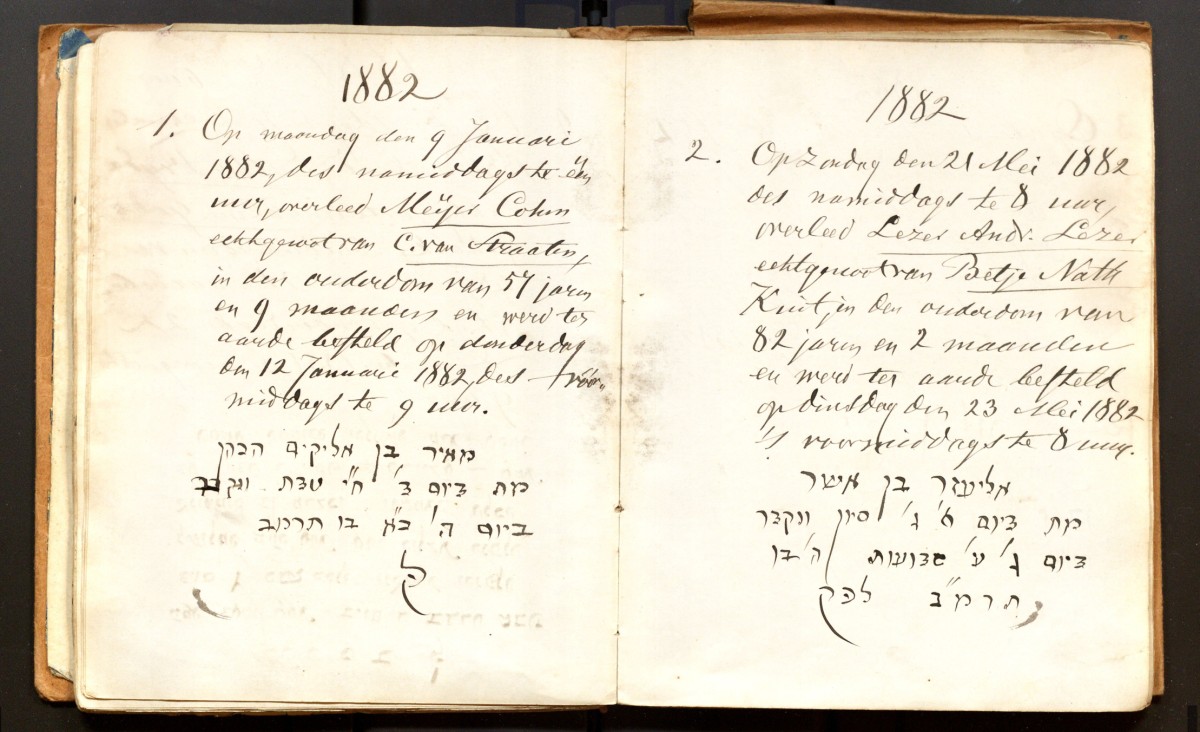 1882
1. Op maandag den 9 Januarie
1882, des namiddags te één
uur, overleed Meÿer Cohen
echtgenoot van C. van Straaten,
in den ouderdom van 57 jaren
en 9 maanden en werd ter
aarde besteld op donderdag
den 12 Januarie 1882, des voor-
middags te 9 uur.
מאיר בן אליקים הכהן
מת ביום ב' ח"י טבת ונקבר
ביום ה' כ"א בו תרמב
ל
1882
2. Op Zondag den 21 Mei 1882
des namiddags te 8 uur,
overleed Lezer Andr. Lezer
echtgenoot van Betje Nath
Kuit, in den ouderdom van
82 jaren en 2 maanden
en werd ter aarde besteld
op dinsdag den 23 Mei 1882
's voormiddags te 8 uur.
אליעזר בן אשר
מת ביום א' ג' סיון ונקבר
ביום ג' ע' שבועות ה' בו
תרמ"ב לפק